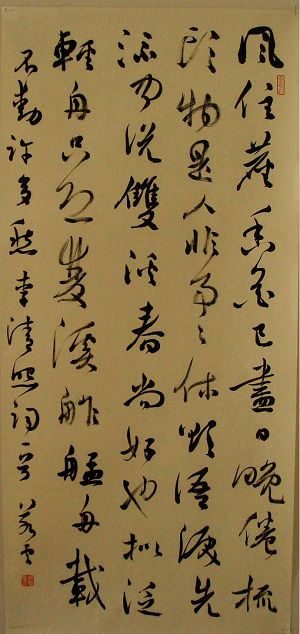 風住塵香花已盡日晚倦梳
頭物是人非事々休欲語淚先
流聞說雙溪春尚好也擬泛
輕舟只恐雙溪舴艋舟載
不動許多愁李清照詞一首